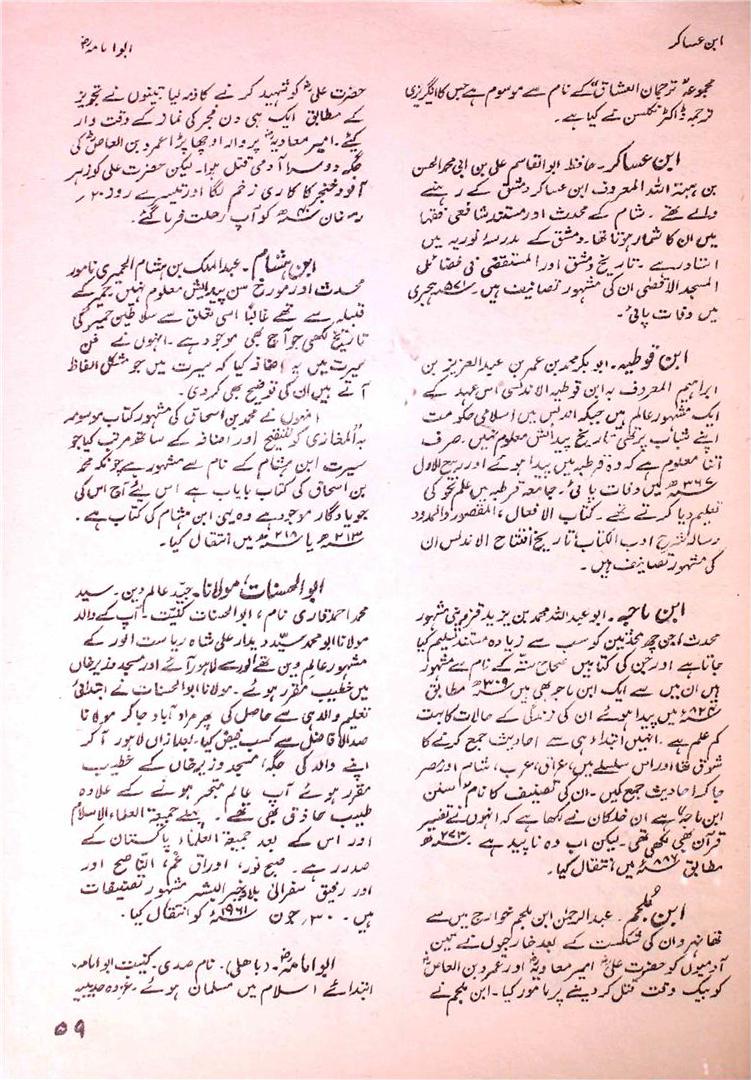 ابن عساکر
ابو امامہؓ
مجموعہ "ترجمان العشاق" کے نام سے موسوم ہے جس کا انگریزی
ترجمہ ڈاکٹر نکلسن نے کیا ہے۔
ابن عساکر۔ حافظ ابوالقاسم علی بن ابی محمد الحسن
بن ہبتہ اللہ المعروف ابن عساکر دمشق کے رہنے
والے تھے۔ شام کے محدث اور مستند شافعی فقہا
میں ان کا شمار ہوتا تھا۔ دمشق کے مدرسہ نوریہ میں
استاد رہے۔ تاریخ دمشق اور المستقضی فی فضائل
المسجد الاقصٰی ان کی مشہور تصانیف ہیں۔ ۵۷۱ ہجری
میں وفات پائی۔
ابن قوطیہ۔ ابوبکر محمد بن عمر بن عبدالعزیز بن
ابراہیم المعروف بہ ابن قوطیہ الاندلسی اس عہد کے
ایک مشہور عالم ہیں جبکہ اندلس میں اسلامی حکومت
اپنے شباب پر تھی۔ تاریخ پیدائش معلوم نہیں۔ صرف
اتنا معلوم ہے کہ وہ قرطبہ میں پیدا ہوئے اور ربیع الاول
۳۶۷ھ میں وفات پائی۔ جامعہ قرطبہ میں علم نحو کی
تعلیم دیا کرتے تھے۔ کتاب الافعال، المقصور والممدود
رسالہ شرح ادب الکتاب، تاریخ افتتاح الاندلس ان
کی مشہور تصانیف ہیں۔
ابن ماجہ۔ ابو عبداللہ محمد بن یزید قزوینی مشہور
محدث، جن چھ محدثین کو سب سے زیادہ مستند تسلیم کیا
جاتا ہے اور جن کی کتابیں صحاح ستہ کے نام سے مشہور
ہیں ان میں سے ایک ابن ماجہ بھی ہیں ۳۰۹ھ مطابق
۸۲۴ء میں پیدا ہوئے ان کی زندگی کے حالات کا بہت
کم علم ہے۔ انہیں ابتداء ہی سے احادیث جمع کرنے کا
شوق تھا اور اس سلسلے میں، عراق، عرب، شام اور مصر
جا کر احادیث جمع کیں۔ ان کی تصنیف کا نام "سنن
ابن ماجہ" ہے ان خلدکان نے لکھا ہے کہ انہوں نے تفسیر
قرآن بھی لکھی تھی۔ لیکن اب وہ ناپید ہے ۲۷۳ھ
مطابق ۸۸۷ء میں انتقال کیا۔
ابن مُلجم۔ عبدالرحمٰن ابن ملجم خوارج میں سے
تھا نہروان کی شکست کے بعد خارجیوں نے تین
آدمیوں کو حضرت علیؓ امیر معاویہؓ اور عمرو بن العاصؓ
کو بیک وقت قتل کر دینے پر مامور کیا۔ ابن ملجم نے
حضرت علیؓ کو شہید کرنے کا ذمہ لیا تینوں نے تجویز
کے مطابق ایک ہی دن فجر کی نماز کے وقت وار
کیے۔ امیر معاویہؓ پر وار اوچھا پڑا عمرو بن العاصؓ کی
جگہ دوسرا آدمی قتل ہوا۔ لیکن حضرت علی کو زہر
آلود خنجر کا کاری زخم لگا اور تیسرے روز ۲۰؍
رمضان ۴۰ھ کو آپ رحلت فرما گئے۔
ابن ہشام۔ عبدالملک بن ہشام الحمیری نامور
محدث اور مورخ سن پیدائش معلوم نہیں حمیر کے
قبیلہ سے تھے غالباً اسی تعلق سے سلاطین حمیر کی
تاریخ لکھی جو آج بھی موجود ہے۔ انہوں نے فن
سیرت میں یہ اضافہ کیا کہ سیرت میں جو مشکل الفاظ
آئے ہیں ان کی توضیح بھی کر دی۔
انہوں نے محمد بن اسحاق کی مشہور کتاب موسومہ
بہ المغازی کو تنقیح اور اضافہ کے ساتھ مرتب کیا جو
سیرت ابن ہشام کے نام سے مشہور ہے چونکہ محمد
بن اسحاق کی کتاب نایاب ہے اس لئے آج اس کی
جو یادگار موجود ہے وہ یہی ابن ہشام کی کتاب ہے۔
۲۱۳ھ یا ۲۱۸ھ میں انتقال کیا۔
ابوالحسنات، مولانا۔ جیّد عالم دین۔ سید
محمد احمد قادری نام، ابوالحسنات کنیت۔ آپ کے والد
مولانا ابو محمد سیّد دیدار علی شاہ ریاست الور کے
مشہور عالم دین تھے الور سے لاہور آئے اور مسجد وزیر خاں
میں خطیب مقرر ہوئے۔ مولانا ابوالحسنات نے ابتدائی
تعلیم والد ہی سے حاصل کی پھر مراد آباد جا کر مولانا
صدر الافاضل سے کسب فیض کیا۔ بعد ازاں لاہور آ کر
اپنے والد کی جگہ، مسجد وزیر خاں کے خطیب
مقرر ہوئے آپ عالم متبحر ہونے کے علاوہ
طبیب حاذق بھی تھے۔ پہلے جمیعۃ العلماء الاسلام
اور اس کے بعد جمیعۃ العلماء پاکستان کے
صدر رہے۔ صبح نور، اوراق غم، التناصح اور
اور رفیق سفر الی بلاد خیر البشر مشہور تصنیفات
ہیں۔ ۳۰؍ جون ۱۹۶۱ء کو انتقال کیا۔
ابو امامہؓ۔ (باھلی)۔ نام صدی۔ کنیت ابوامامہ۔
ابتدائے اسلام میں مسلمان ہوئے۔ غزوہ حدیبیہ
۵۹